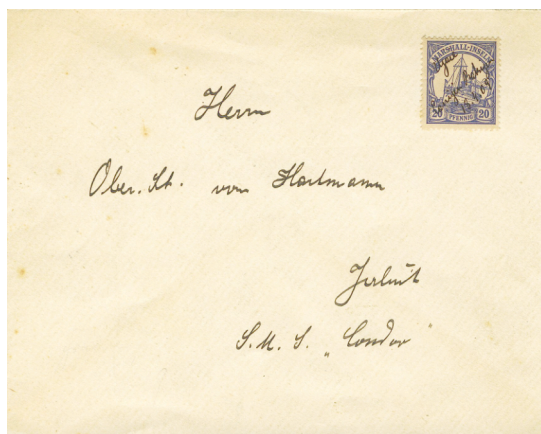 MARSHALL-INSELN
20 PFENNIG 20
Herrn
Ober. Lt. von Hartmann
Jaluit
S. M. S. „Condor"